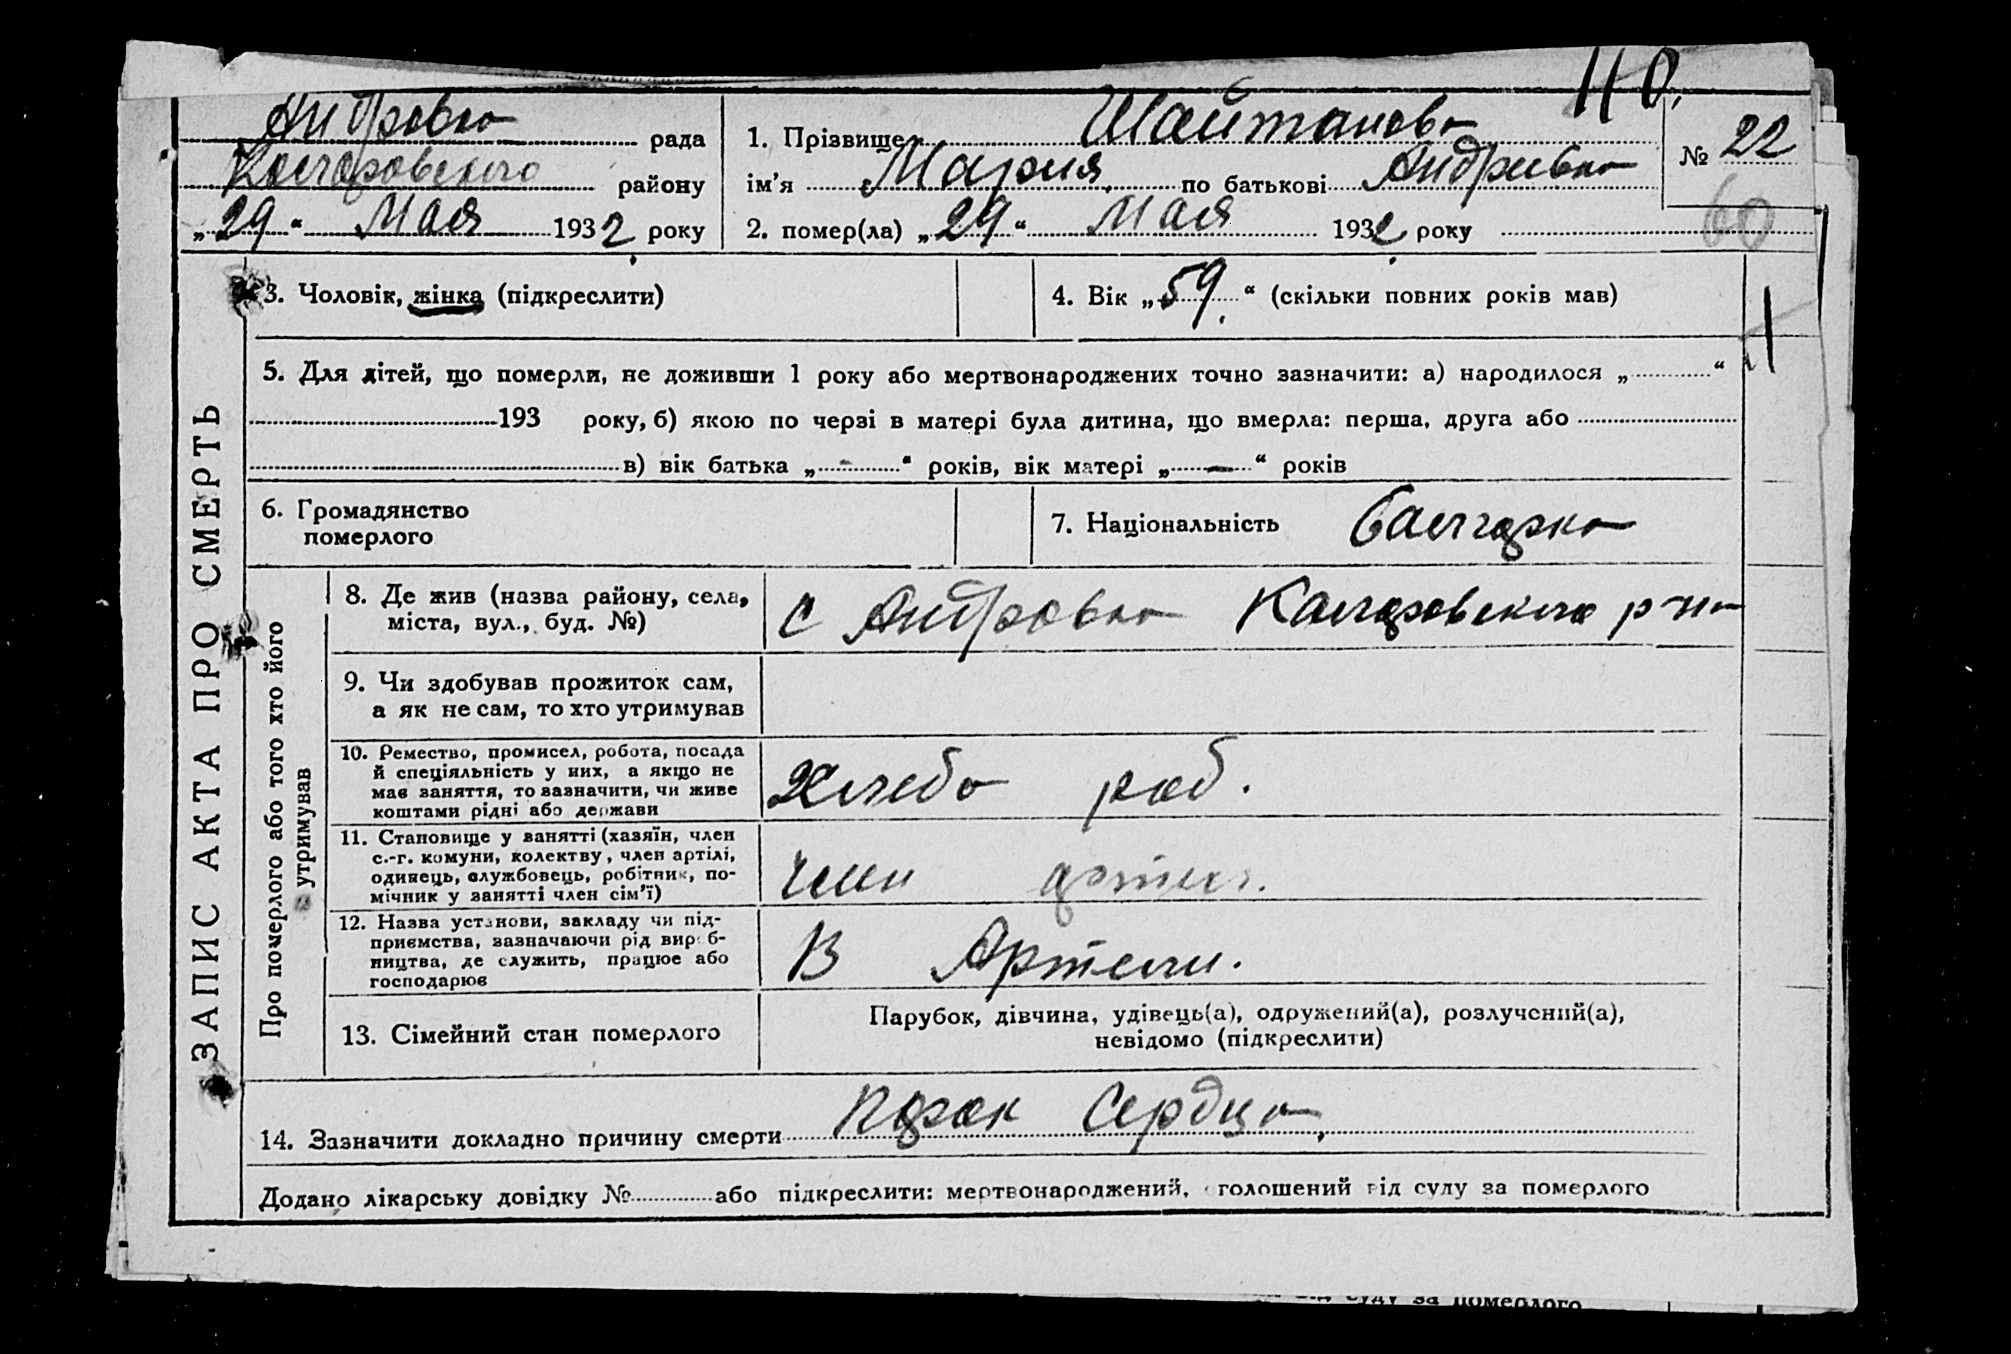 110.
Андровка рада
Коларовского району
„29“ Мая 1932 року
1. Прізвище Шайтанова
ім'я Мария по батькові Андриевна
2. помер(ла) „29“ Мая 1932 року
№ 22
60
ЗАПИС АКТА ПРО СМЕРТЬ
3. Чоловік, жінка (підкреслити)
4. Вік „59“ (скільки повних років мав)
5. Для дітей, що померли, не доживши 1 року або мертвонароджених точно зазначити: а) народилося „ “
193 року, б) якою по черзі в матері була дитина, що вмерла: перша, друга або
в) вік батька „-“ років, вік матері „-“ років
6. Громадянство
померлого
7. Національність болгарка
Про померлого або того хто його
утримував
8. Де жив (назва району, села,
міста, вул., буд. №)
с Андровка Коларовского р-на
9. Чи здобував прожиток сам,
а як не сам, то хто утримував
10. Ремество, промисел, робота, посада
й спеціяльність у них, а якщо не
мав заняття, то зазначити, чи живе
коштами рідні або держави
Хлебо роб.
11. Становище у занятті (хазяїн, член
с.-г. комуни, колектву, член артілі,
одинець, службовець, робітник, по-
мічник у занятті член сім'ї)
член артели.
12. Назва установи, закладу чи під-
приємства, зазначаючи рід вироб-
ництва, де служить, працює або
господарює
В Артели.
13. Сімейний стан померлого
Парубок, дівчина, удівець(а), одружений(а), розлучений(а),
невідомо (підкреслити)
14. Зазначити докладно причину смерти Порок Сердца,
Додано лікарську довідку № або підкреслити: мертвонароджений, оголошений від суду за померлого
від суду за померлого